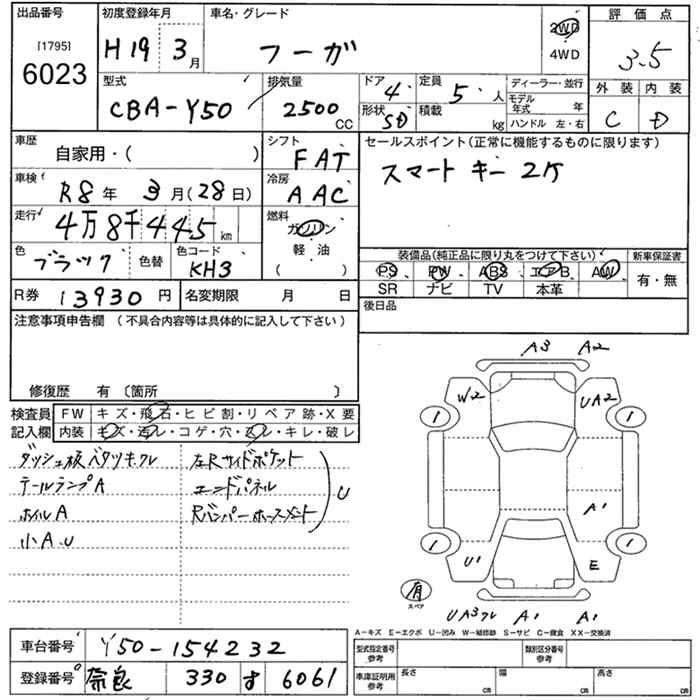 出品番号 初度登録年月 車名・グレード 評価点
[1795] 6023 H19 3月 フーガ 2WD 4WD 3.5
型式 排気量 ドア 定員 ディーラー・並行 外装 内装
CBA-Y50 2500CC 4 5人 モデル年式 年 C D
形状 SD 積載 kg ハンドル 左・右
車歴 シフト セールスポイント(正常に機能するものに限ります)
自家用・( ) FAT スマートキー 2ケ
車検 冷房
R8年 3月(28日) AAC
走行 燃料
4万8千445km ガソリン
色 色替 色コード 軽油
ブラック KH3 ( )
装備品(純正品に限り丸をつけて下さい) 新車保証書
PS PW ABS エアB AW 有・無
SR ナビ TV 本革
R券 13930円 名変期限 月 日 後日品
注意事項申告欄 (不具合内容等は具体的に記入して下さい)
修復歴 有 〔箇所 〕
検査員 FW キズ・飛石・ヒビ割・リペア跡・X要
記入欄 内装 キズ・汚レ・コゲ・穴・スレ・キレ・破レ
ダッシュ板ベタツキ.クレ 左Rサイドポケット
テールランプA エンドパネル
ホイルA Rバンパーホースメント
小A.U U
A3 A2
W2 UA2
1 1
A1
1 1
U1 E
有 スペア
UA3クレ A1 A1
A-キズ E-エクボ U-凹み W-補修跡 S-サビ C-腐食 XX-交換済
車台番号 Y50-154232 型式指定番号 参考 類別区分番号 参考
登録番号 奈良 330 す 6061 車庫証明用 参考 長さ cm 幅 cm 高さ cm